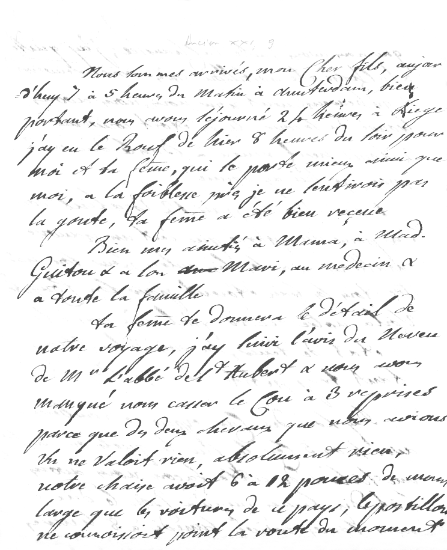 Nous sommes arrivés, mon Cher fils, aujour
d'huy 7 à 5 heures du matin à amsterdam, bien
portant, nous avons séjourné 24 heures à Liege
j'ay eu le Rouf de hier 8 heures du soir pour
moi et ta feme, qui se porte mieux ainsi que
moi, a la foiblesse près je ne sentirois pas
la goute, ta feme a été bien reçeue
Bien mes amitiés à Mama, à Mad.
Guitou & a son Mari, au médecin &
a toute la famille
ta feme te donnera le détail de
notre voyage, j'ay suivi l'avis du Neveu
de Mr L'abbé de St hubert & nous avons
manqué nous casser le Cou à 3 reprises
parce que des deux chevaux que nous avions
Un ne valoit rien, absolument rien,
notre chaise avoit 6 à 12 pouces de moins
large que les voitures de ce pays, le postillon
ne connoissoit point la route du moment